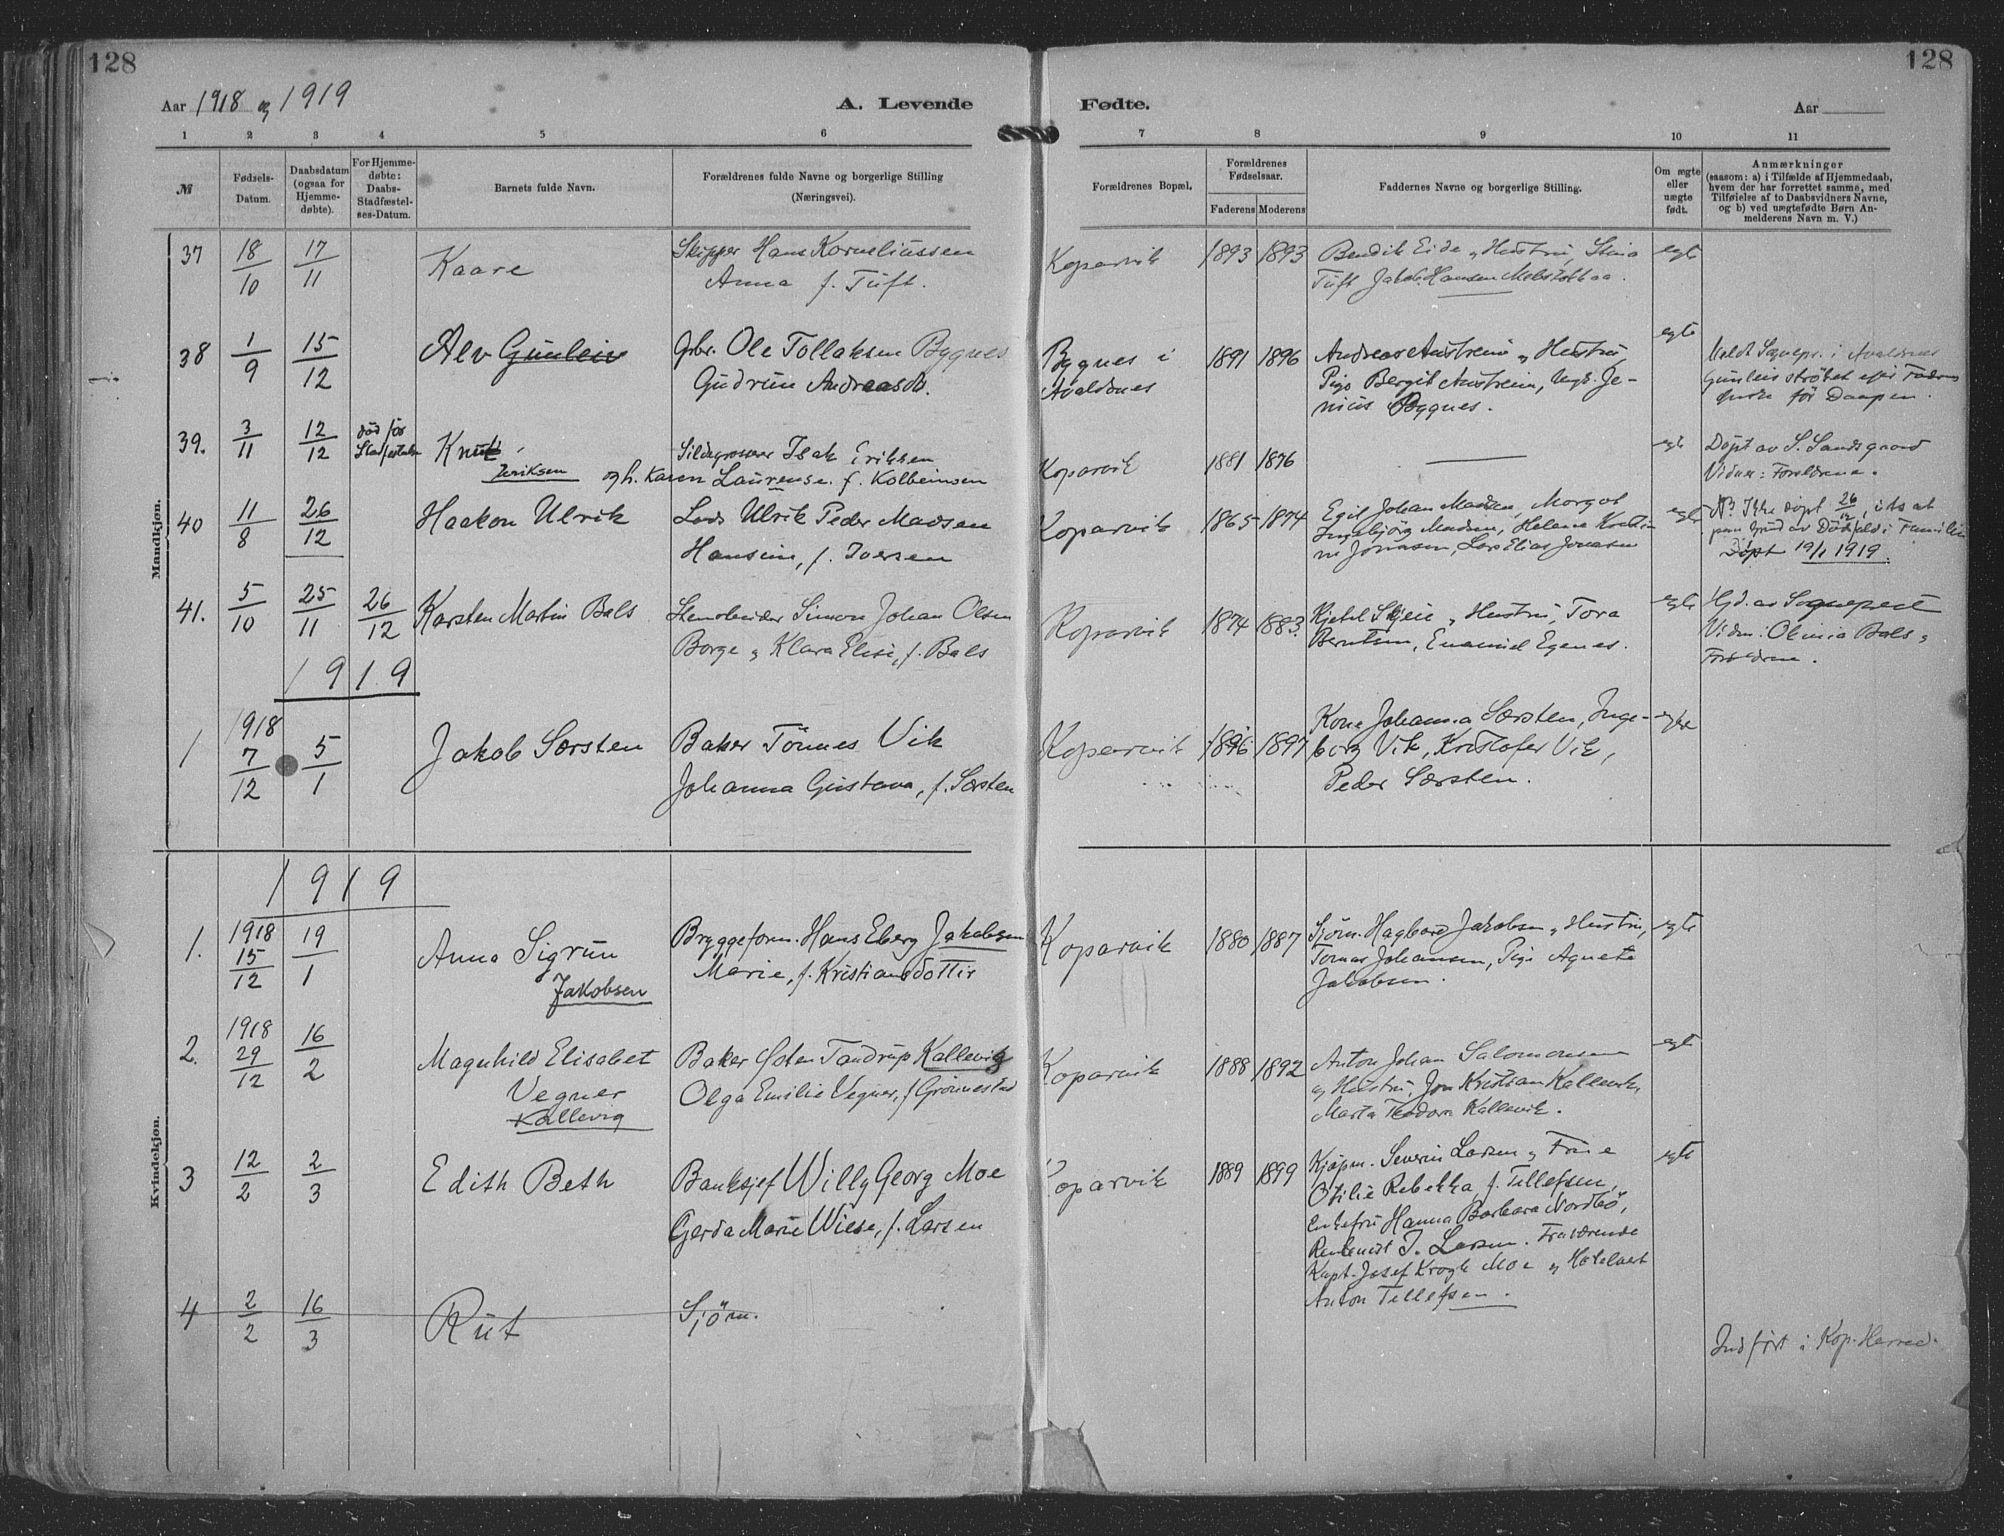 128
128
Aar 1918 og 1919
A. Levende
Fødte.
Aar
1 2 3 4 5 6 7 8 9 10 11
№
Fødsels-Datum.
Daabsdatum (ogsaa for Hjemme-døbte).
For Hjemme-døbte: Daabs-Stadfæstel-ses-Datum.
Barnets fulde Navn.
Forældrenes fulde Navne og borgerlige Stilling (Næringsvei).
Forældrenes Bopæl.
Forældrenes Fødselsaar.
Faderens Moderens
Faddernes Navne og borgerlige Stilling.
Om ægte eller uægte født.
Anmærkninger
(saasom: a) i Tilfælde af Hjemmedaab,
hvem der har forrettet samme, med
Tilføielse af to Daabsvidners Navne,
og b) ved uægtefødte Børn An-
melderens Navn m. V.)
Mandkjøn.
37 18/10 17/11 Kaare Skipper Hans Korneliussen Koparvik 1893 1893 Bendik Eide og Hustru, Stina egte
Anna f. Tuft. Tuft Jakob Hansen
38 1/9 15/12 Alv Gunleiv Gbr. Ole Tollaksen Bygnes Bygnes i 1891 1896 Andreas Austreim og Hustru, egte Meldt Sognepr. i Avaldsnes
Gudrun Andreasd. Avaldsnes Pige Bergit Austreim, Ungk. Je- Gunleiv strøket efter Faderens
nius Bygnes. ønske før Daapen.
39. 3/11 12/12 død før Stadfestelse Knut Sildegrosserer Isak Eriksen Koparvik 1881 1876 egte Døpt av S. Sandsgaard
Eriksen og h. Karen Laurense f. Kolbeinsen Vidner: Forældrene.
40 11/8 26/12 Haakon Ulrik Lods Ulrik Peder Madsen Koparvik 1865 1874 Egil Johan Madsen, Margot egte NB Ikke døpt 26/12, idet at
Hansine, f. Iversen Ingebjørg Madsen, Helene Kristi- paa Grund av Dødsfald i Familien
ne Jonasen, Lars Elias Jonasen Døpt 19/1 1919.
41. 5/10 25/11 26/12 Karsten Martin Bals Stenarbeider Simon Johan Olsen Koparvik 1874 1883. Kjetil Skjeie og Hustru, Tora egte Hjd. av Sogneprest
Borge og Klara Elise, f. Bals Berntsen, Emanuel Egenes. Vidn: Olinia Bals og
Forældrene.
1919
1 1918 7/12 5/1 Jakob Sørsten Baker Tønnes Vik Koparvik 1896 1897 Kone Johanna Sørsten, Inge- egte
Johanna Gustava, f. Sørsten borg Vik, Kristofer Vik,
Peder Sørsten.
Kvindekjøn.
1919
1. 1918 15/12 19/1 Anna Sigrun Bryggeform. Hans Eberg Jakobsen Koparvik 1880 1887 Sjøm. Hagbard Jakobsen og Hustru, egte
Jakobsen Marie, f. Kristiansdotter Tomas Johansen, Pige Agnete
Jakobsen.
2. 1918 29/12 16/2 Magnhild Elisabet Baker Østen Tandrup Kallevig Koparvik 1888 1892 Anton Johan Salomonsen egte
Vegner Olga Emilie Vegner, f. Grønnestad og Hustru, Jon Kristian Kallevik,
Kallevig Marta Teodora Kallevik.
3 12/2 2/3 Edith Beth Banksjef Willy Georg Moe Koparvik 1889 1899 Kjøpm. Severin Larsen og Frue egte
Gerda Marie Wiese, f. Larsen Otilie Rebekka, f. Tillefsen,
Enkefru Hanna Barbara Nordbø,
T. Larsen. Fraværende
Kapt. Josef Krogh Moe og Hotelvert
Anton Tillefsen.
4 2/2 16/3 Rut Sjøm.
Indført i Kop. Herred.